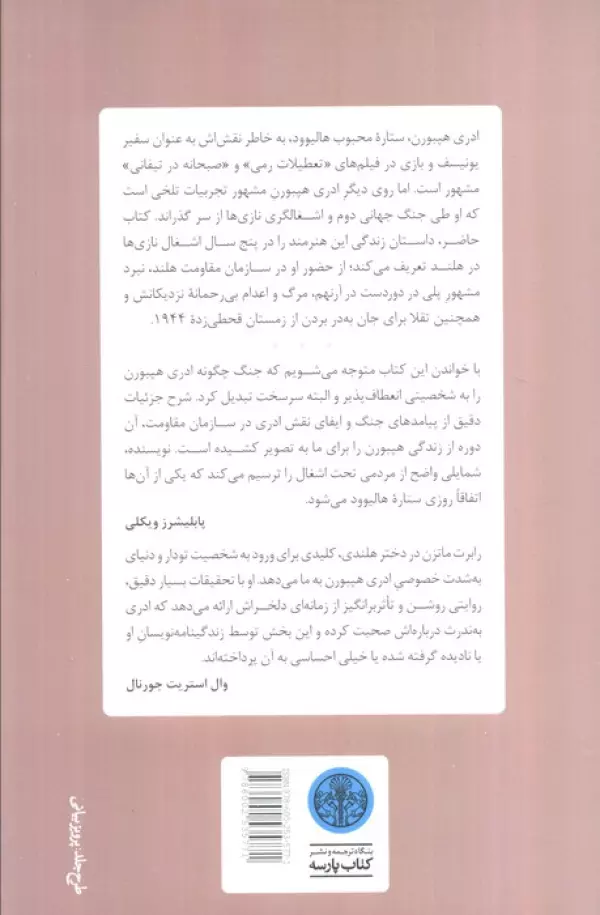 ادری هپبورن، ستارهٔ محبوب هالیوود، به خاطر نقش‌اش به عنوان سفیر
یونیسف و بازی در فیلم‌های «تعطیلات رمی» و «صبحانه در تیفانی»
مشهور است. اما روی دیگرِ ادری هپبورنِ مشهور تجربیات تلخی است
که او طی جنگ جهانی دوم و اشغالگری نازی‌ها از سر گذراند. کتاب
حاضر، داستان زندگی این هنرمند را در پنج سال اشغال نازی‌ها
در هلند تعریف می‌کند؛ از حضور او در سازمان مقاومت هلند، نبرد
مشهور پلی در دوردست در آرنهم، مرگ و اعدام بی‌رحمانهٔ نزدیکانش و
همچنین تقلا برای جان به‌در بردن از زمستان قحطی‌زدهٔ ۱۹۴۴.
با خواندن این کتاب متوجه می‌شویم که جنگ چگونه ادری هپبورن
را به شخصیتی انعطاف‌پذیر و البته سرسخت تبدیل کرد. شرح جزئیات
دقیق از پیامدهای جنگ و ایفای نقش ادری در سازمان مقاومت، آن
دوره از زندگی هپبورن را برای ما به تصویر کشیده است. نویسنده،
شمایلی واضح از مردمی تحت اشغال را ترسیم می‌کند که یکی از آن‌ها
اتفاقاً روزی ستارهٔ هالیوود می‌شود.
پابلیشرز ویکلی
رابرت ماتزن در دختر هلندی، کلیدی برای ورود به شخصیت تودار و دنیای
به‌شدت خصوصیِ ادری هپبورن به ما می‌دهد. او با تحقیقات بسیار دقیق،
روایتی روشن و تأثربرانگیز از زمانه‌ای دلخراش ارائه می‌دهد که ادری
به‌ندرت درباره‌اش صحبت کرده و این بخش توسط زندگینامه‌نویسانِ او
یا نادیده گرفته شده یا خیلی احساسی به آن پرداخته‌اند.
وال استریت جورنال
بنگاه ترجمه و نشر
کتاب پارسه
طرح جلد: پرویز بیانی